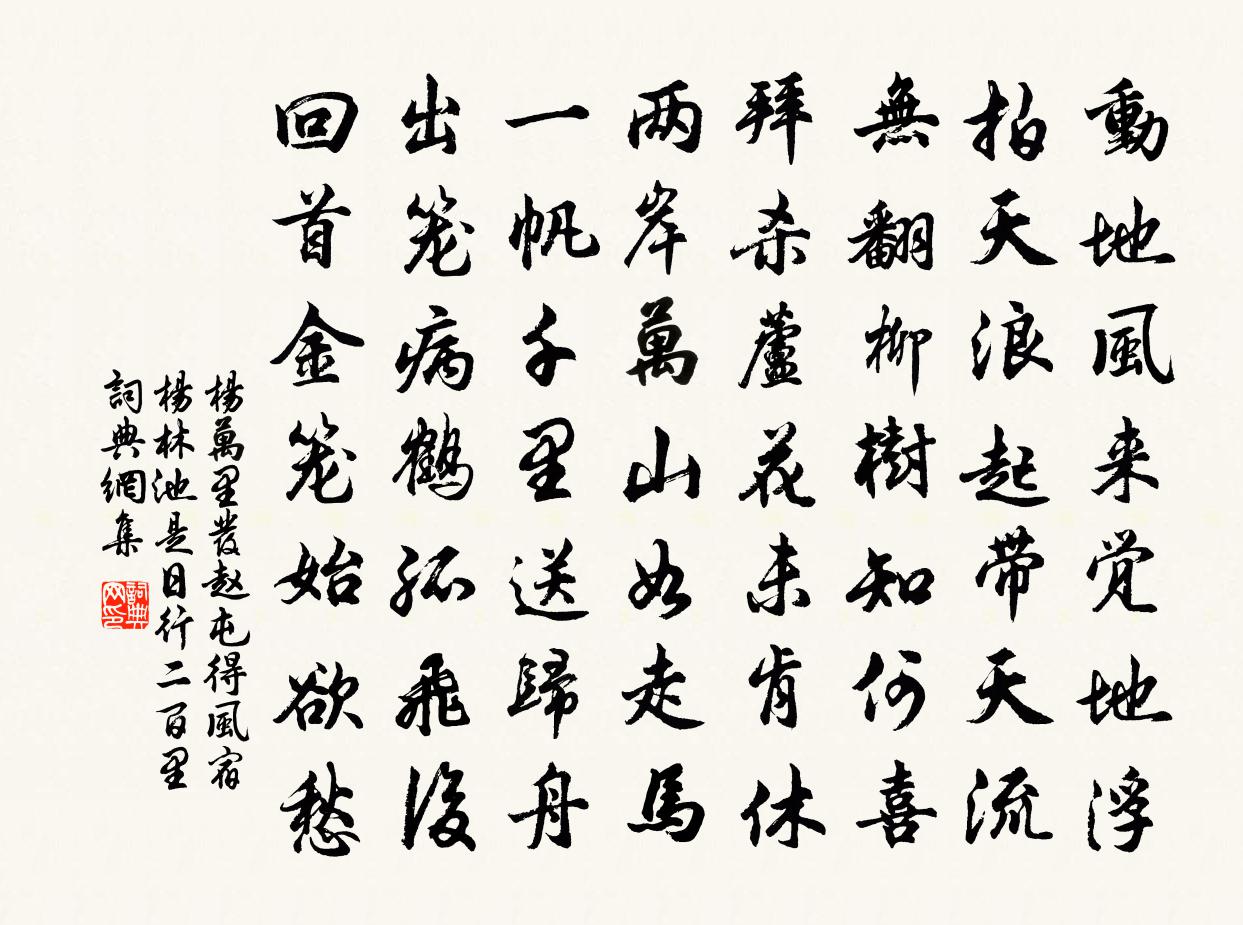 動地風来觉地浮
拍天浪起带天流
無翻柳樹知何喜
拜杀蘆花未肯休
两岸萬山如走馬
一帆千里送歸舟
出笼病鶴孤飛後
回首金笼始欲愁
楊萬里發赵屯得風宿
楊林池是日行二百里
詞典網集
詞典
网印